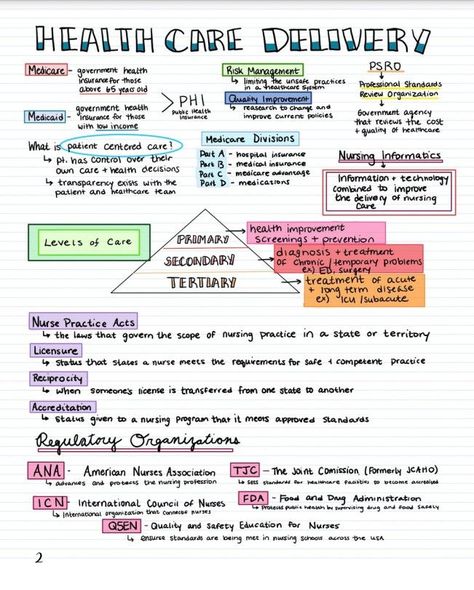 HEALTH CARE DELIVERY
Medicare - government health
insurance for those
above 65 years old
Medicaid - government health
insurance for those
with low income
PHI
Public Health
Insurance
Risk Management
↳ limiting the unsafe practices
in a healthcare system
Quality Improvement
↳ reasearch to change and
improve current policies
PSRO
Professional Standards
Review Organization
Government agency
that reviews the cost
+ quality of healthcare
What is patient centered care?
↳ pt. has control over their
own care + health decisions
↳ transparency exists with the
patient and healthcare team
Medicare Divisions
Part A - hospital insurance
Part B - medical insurance
Part C - medicare advantage
Part D - medications
Nursing Informatics
Information + technology
combined to improve
the delivery of nursing
care
Levels of Care
PRIMARY
health improvement
screenings + prevention
SECONDARY
diagnosis + treatment
of chronic/temporary problems
ex) ED, surgery
TERTIARY
treatment of acute
+ long term disease
ex) ICU/subacute
Nurse Practice Acts
↳ the laws that govern the scope of nursing practice in a state or territory
Licensure
↳ Status that states a nurse meets the requirements for safe + competent practice
Reciprocity
↳ when someone's license is transferred from one state to another
Accreditation
↳ Status given to a nursing program that it meets approved standards
Regulatory Organizations
ANA - American Nurses Association
↳ advances and protects the nursing profession
TJC - The Joint Comission (formerly JCAHO)
↳ sets standards for healthcare facilities to become accredited
ICN - International Council of Nurses
↳ International organization that connects nurses
FDA - Food and Drug Administration
↳ Protects public health by supervising drug and food safety
QSEN - Quality and Safety Education for Nurses
↳ ensure standards are being met in nursing schools across the USA
2